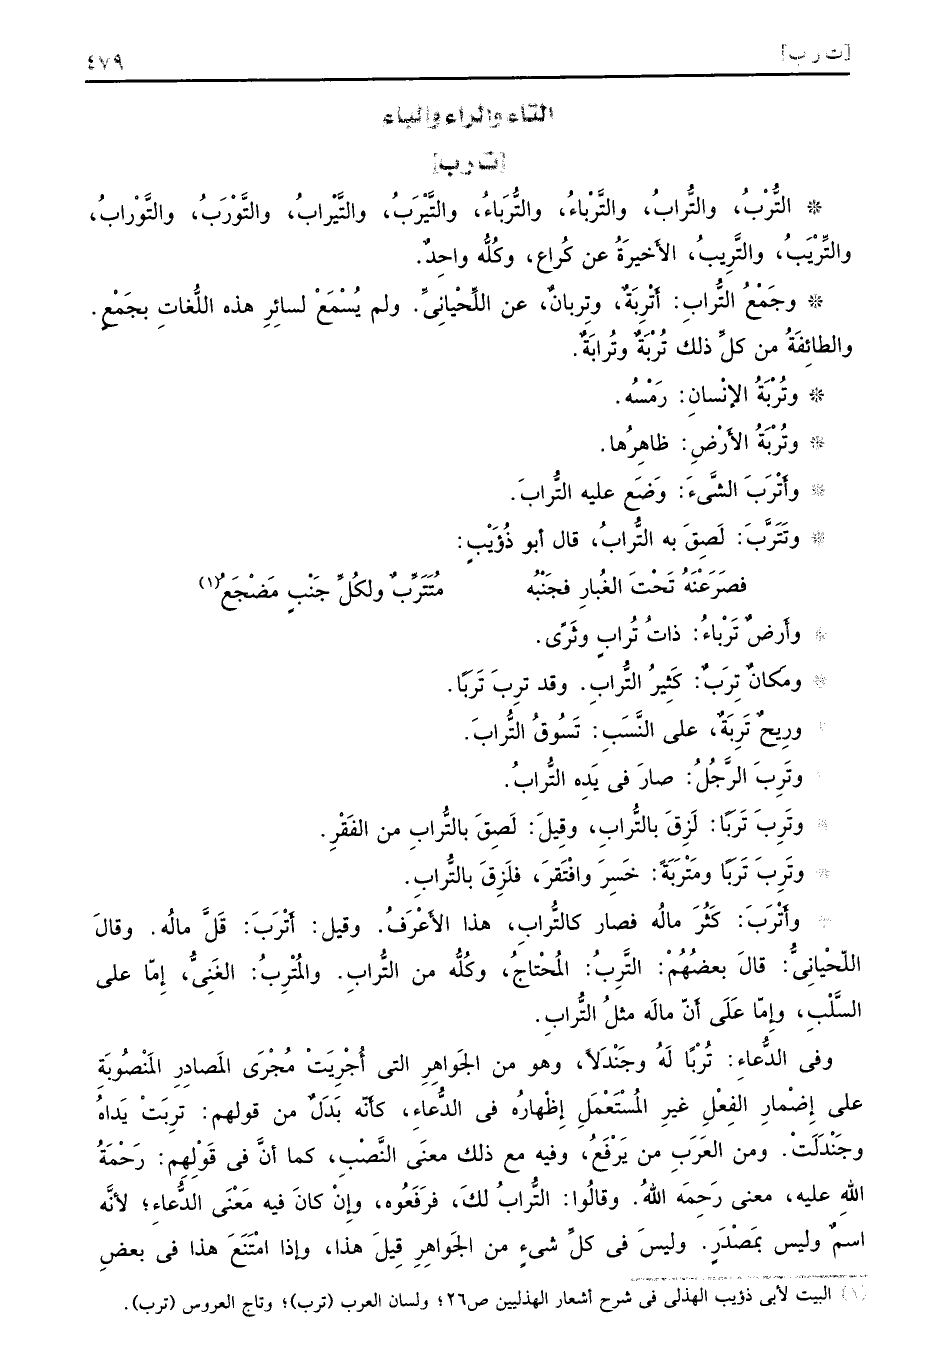 [ت ر ب] ٤٧٩
التاء والراء والباء
[ت ر ب]
* التُّرْبُ، والتُّرابُ، والتَّرْباءُ، والتُّرَباءُ، والتَّيْرَبُ، والتَّيْرابُ، والتَّوْرَبُ، والتَّوْرابُ،
والتِّرْيَبُ، والتَّرِيبُ، الأخيرَةُ عن كُراع، وكُلُّه واحِدٌ.
* وجَمْعُ التُّراب: أَتْرِبَةٌ، وتربانٌ، عن اللِّحْيانىِّ. ولم يُسْمَعْ لسائرِ هذه اللُّغات بجَمْعٍ.
والطائِفَةُ من كلِّ ذلك تُرْبَةٌ وتُرابَةٌ.
* وتُرْبَةُ الإنْسانِ: رَمْسُه.
* وتُرْبَةُ الأَرْضِ: ظاهِرُها.
* وأَتْرَبَ الشَّىءَ: وَضَع عليه التُّرابَ.
* وتَتَرَّبَ: لَصِقَ به التُّرابُ، قال أبو ذُؤَيْبٍ:
فصَرَعْنَه تَحْتَ الغُبارِ فجَنْبُه مُتَتَرِّبٌ ولكُلِّ جَنْبٍ مَضْجَعُ(١)
* وأرضٌ تَرْباءُ: ذاتُ تُرابٍ وثَرًى.
* ومكانٌ تَرِبٌ: كَثِيرُ التُّراب. وقد تربَ تَرَبًا.
وريحٌ تَرِبَةٌ، على النَّسَب: تَسُوقُ التُّرابَ.
وتَرِبَ الرَّجُلُ: صارَ فى يَدِه التُّرابُ.
* وتَرِبَ تَرَبًا: لَزِقَ بالتُّراب، وقيلَ: لَصِقَ بالتُّراب من الفَقْرِ.
* وتَرِبَ تَرَبًا ومَتْرَبَةً: خَسِرَ وافْتَقرَ، فلَزِقَ بالتُّرابِ.
* وأَتْرَبَ: كَثُرَ مالُه فصار كالتُّراب، هذا الأَعْرَفُ. وقيل: أَتْرَبَ: قَلَّ مالُه. وقالَ
اللِّحْيانىُّ: قالَ بعضُهُمْ: التَّرِبُ: المُحْتاجُ، وكُلُّه من التُّراب. والمُتْرِبُ: الغَنىُّ، إمّا على
السَّلْبِ، وإمّا عَلَى أنّ مالَه مثلُ التُّرابِ.
وفى الدُّعاءِ: تُرْبًا لَهُ وجَنْدَلاً، وهو من الجَواهرِ التى أُجْرِيَتْ مُجْرَى المَصادِرِ المَنْصُوبَةِ
على إضْمارِ الفِعْلِ غيرِ المُسْتَعْمَلِ إظْهارُه فى الدُّعاء، كأنّه بَدَلٌ من قولهم: تربَتْ يَداهُ
وجَنْدَلَتْ. ومن العَرَبِ من يَرْفَعُ، وفيه مع ذلك معنَى النَّصْبِ، كما أنَّ فى قَوْلِهِم: رَحْمَةُ
اللهِ عليه، معنى رَحِمَه اللهُ. وقالُوا: التُّرابُ لكَ، فرَفَعُوه، وإنْ كانَ فيه مَعْنَى الدُّعاء؛ لأنَّه
اسمٌ وليس بمَصْدَرٍ. وليسَ فى كلِّ شىءٍ من الجَواهِرِ قِيلَ هذا، وإذا امْتَنَعَ هذا فى بعضِ
(١) البيت لأبى ذؤيب الهذلى فى شرح أشعار الهذليين ص٢٦؛ ولسان العرب (ترب)؛ وتاج العروس (ترب).